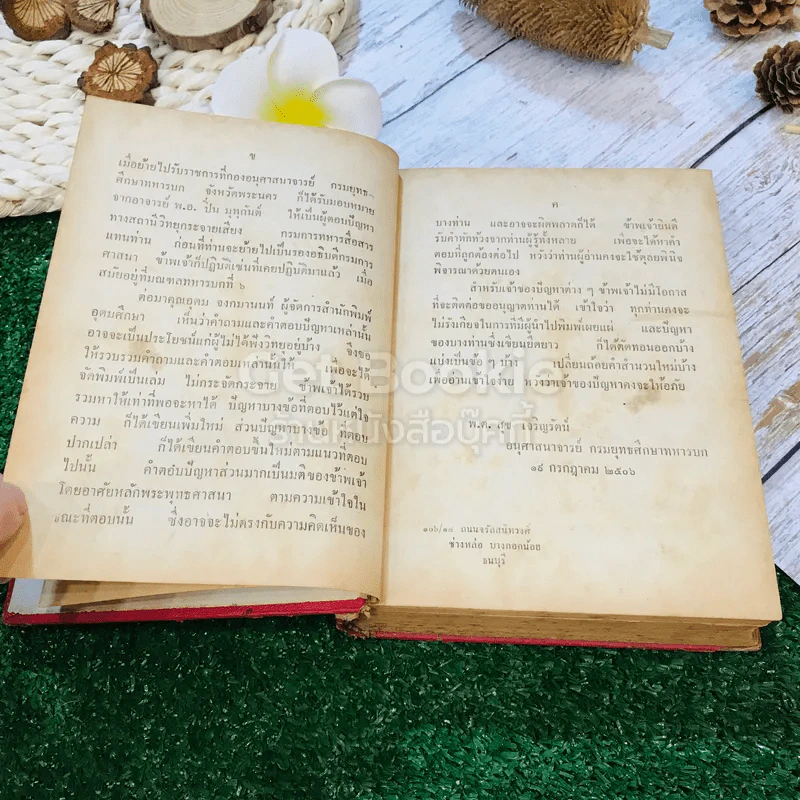 ข
เมื่อย้ายไปรับราชการที่กองอนุศาสนาจารย์ กรมยุทธ-
ศึกษาทหารบก จังหวัดพระนคร ก็ได้รับมอบหมาย
จากอาจารย์ พ.อ. ปิ่น มุทุกันต์ ให้เป็นผู้ตอบปัญหา
ทางสถานีวิทยุกระจายเสียง กรมการทหารสื่อสาร
แทนท่าน ก่อนที่ท่านจะย้ายไปเป็นรองอธิบดีกรมการ
ศาสนา ข้าพเจ้าก็ปฏิบัติเช่นที่เคยปฏิบัติมาแล้ว เมื่อ
สมัยอยู่ที่มณฑลทหารบกที่ ๖
ต่อมาคุณอุดม จงกมานนท์ ผู้จัดการสำนักพิมพ์
อุดมศึกษา เห็นว่าคำถามและคำตอบปัญหาเหล่านั้น
อาจจะเป็นประโยชน์แก่ผู้ไม่ได้ฟังวิทยุอยู่บ้าง จึงขอ
ให้รวบรวมคำถามและคำตอบเหล่านั้นให้ เพื่อจะได้
จัดพิมพ์เป็นเล่ม ไม่กระจัดกระจาย ข้าพเจ้าได้รวบ
รวมหาให้เท่าที่พอจะหาได้ ปัญหาบางข้อที่ตอบไว้แต่ใจ
ความ ก็ได้เขียนเพิ่มใหม่ ส่วนปัญหาบางข้อ ที่ตอบ
ปากเปล่า ก็ได้เขียนคำตอบขึ้นใหม่ตามแนวที่ตอบ
ไปนั้น คำตอบปัญหาส่วนมากเป็นมติของข้าพเจ้า
โดยอาศัยหลักพระพุทธศาสนา ตามความเข้าใจใน
ขณะที่ตอบนั้น ซึ่งอาจจะไม่ตรงกับความคิดเห็นของ
ค
บางท่าน และอาจจะผิดพลาดก็ได้ ข้าพเจ้ายินดี
รับคำทักท้วงจากท่านผู้รู้ทั้งหลาย เพื่อจะได้หาคำ
ตอบที่ถูกต้องต่อไป หวังว่าท่านผู้อ่านคงจะใช้ดุลยพินิจ
พิจารณาด้วยตนเอง
สำหรับเจ้าของปัญหาต่าง ๆ ข้าพเจ้าไม่มีโอกาส
ที่จะติดต่อขออนุญาตท่านได้ เข้าใจว่า ทุกท่านคงจะ
ไม่รังเกียจในการที่มีผู้นำไปพิมพ์เผยแผ่ และปัญหา
ของบางท่านซึ่งเขียนยืดยาว ก็ได้ตัดทอนออกบ้าง
แบ่งเป็นข้อ ๆ บ้าง เปลี่ยนถ้อยคำสำนวนใหม่บ้าง
เพื่ออ่านเข้าใจง่าย หวังว่าเจ้าของปัญหาคงจะให้อภัย
พ.ต. สุข เจริญรัตน์
อนุศาสนาจารย์ กรมยุทธศึกษาทหารบก
๑๙ กรกฎาคม ๒๕๐๖
๑๐๖/๑๘ ถนนจรัลสนิทวงศ์
ช่างหล่อ บางกอกน้อย
ธนบุรี
Get Bookie
ร้านหนังสือบุ๊คกี้